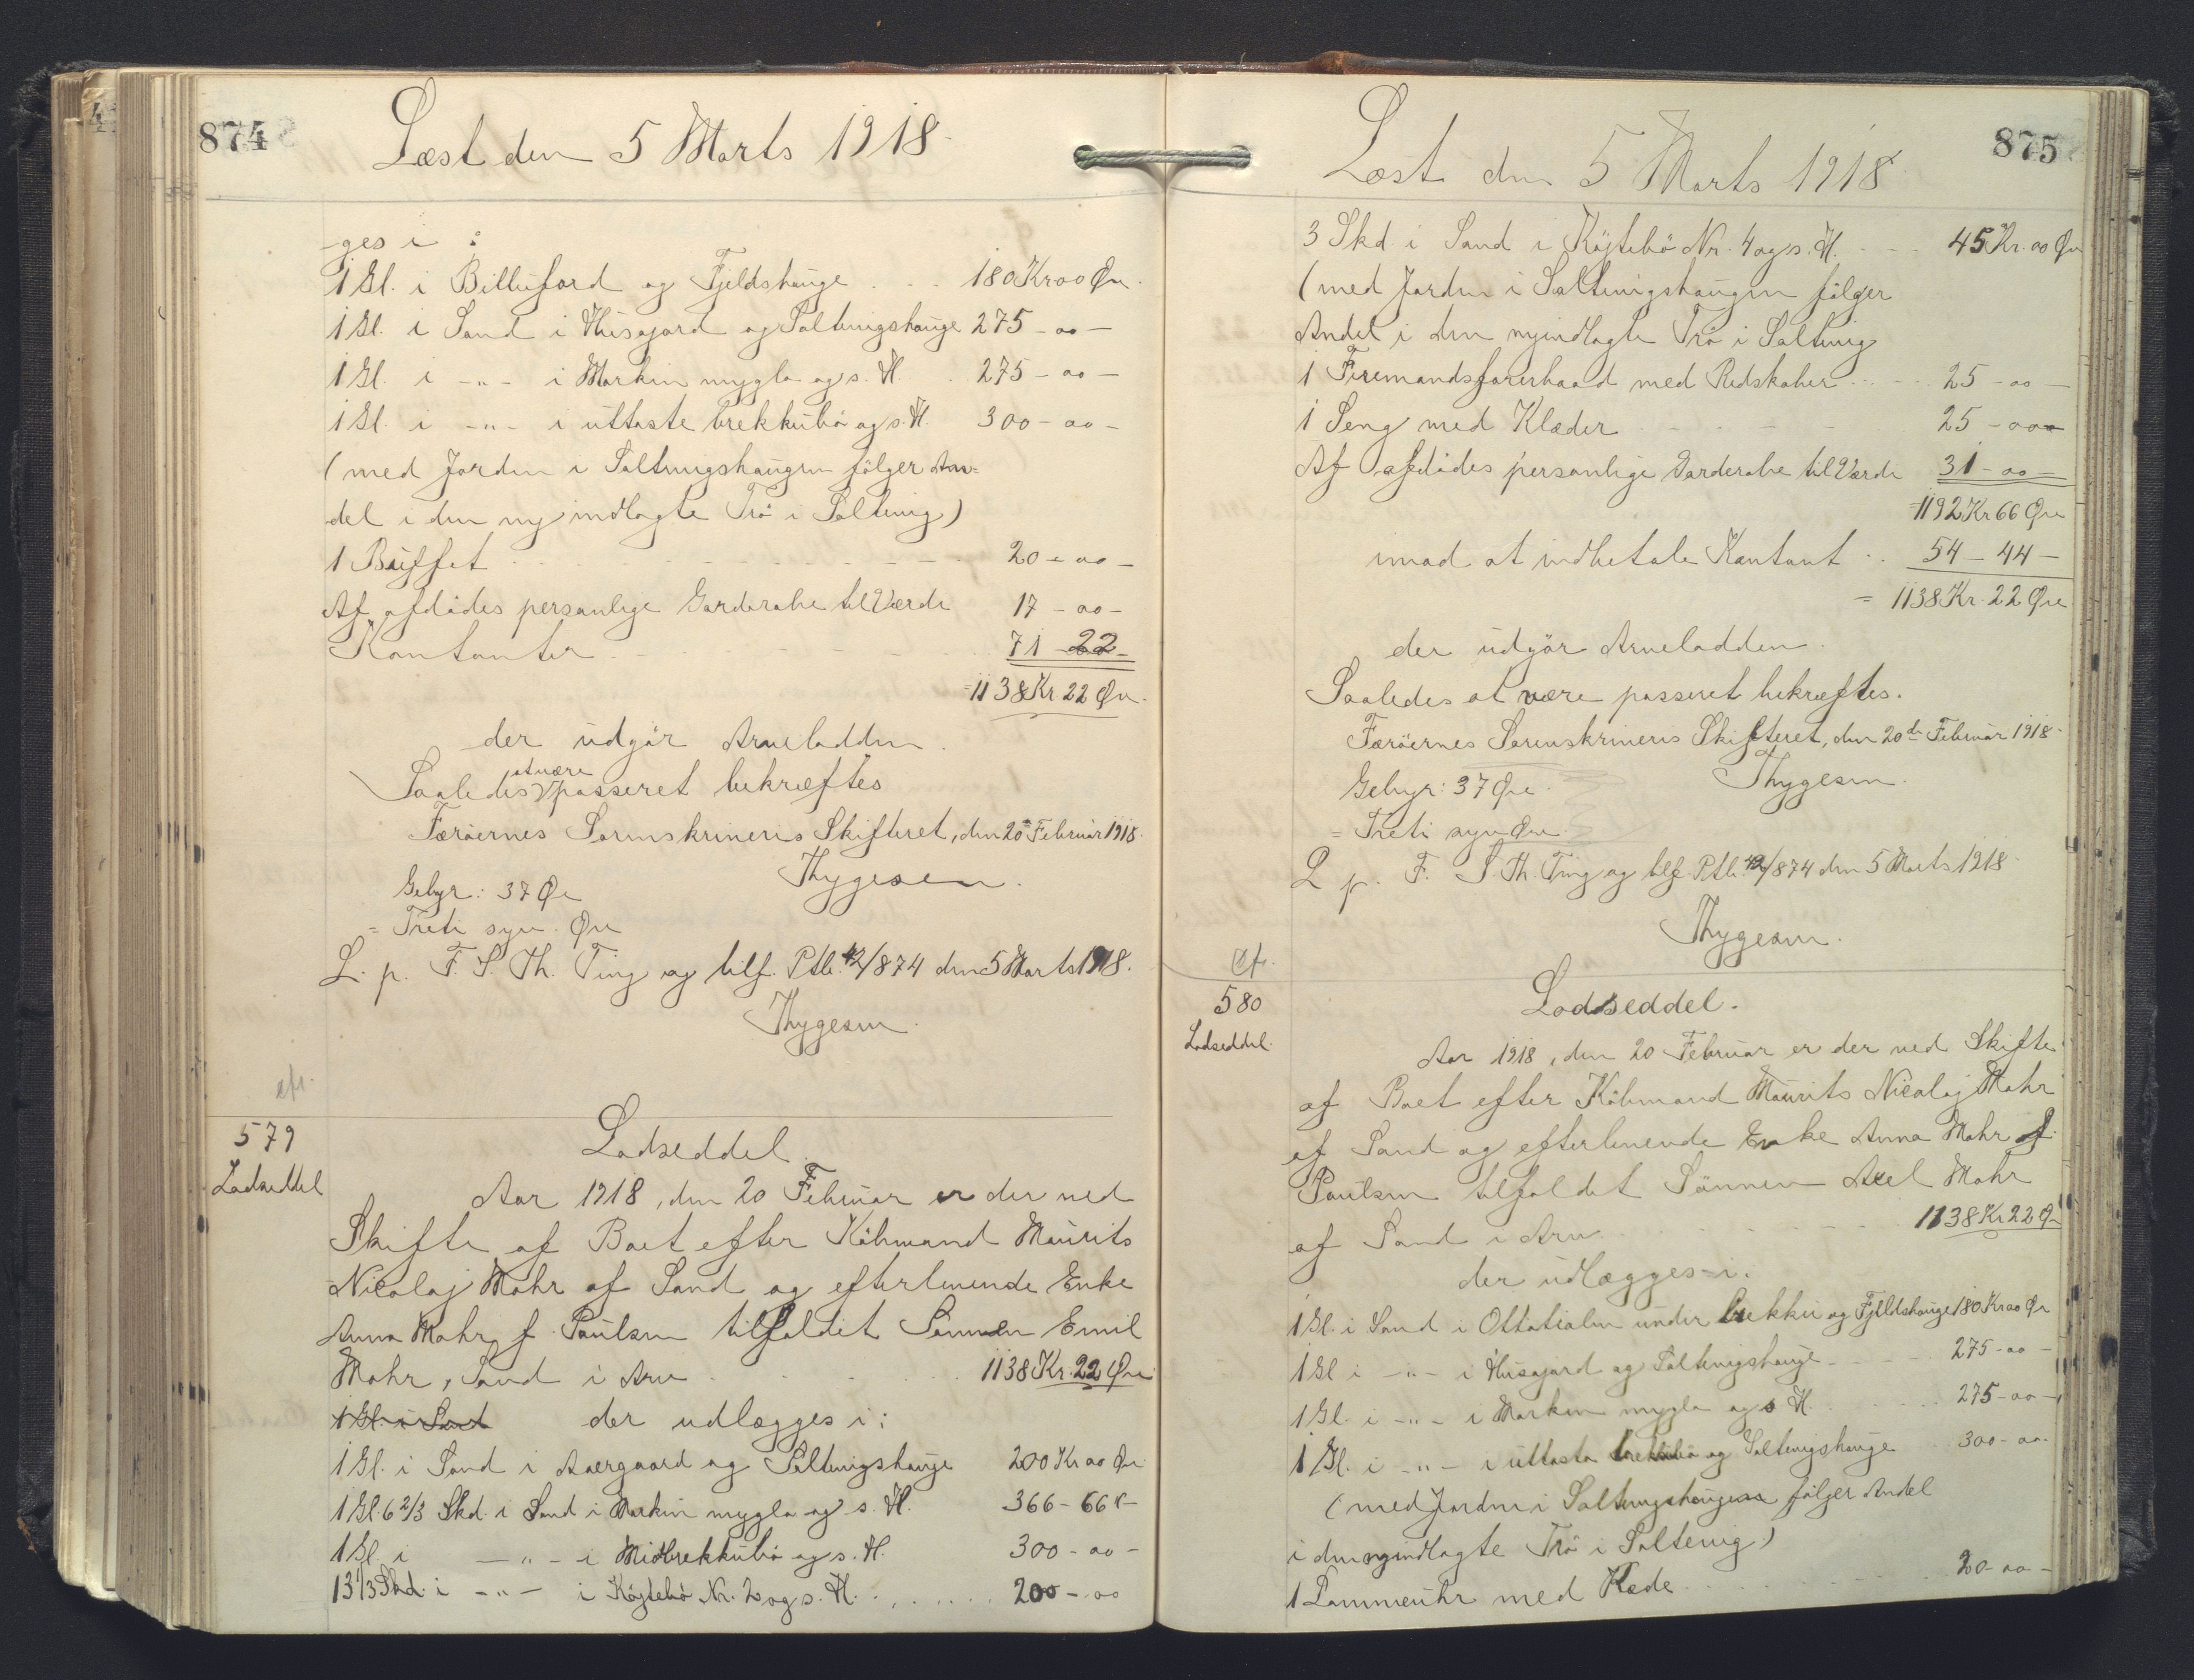 874
Læst den 5 Marts 1918.
-ges i :
1 Gl. i Billufjord og Fjeldshauge . . . 180 Kr 00 Øre.
1 Gl. i Sand i Húsagard og Saltuvigshauge 275 - 00 -
1 Gl. i -"- i Markun mygla og s. H. . 275 - 00 -
1 Gl. i -"- i uttaste brekkubö og s. H. 300 - 00 -
(med Jorden i Saltuvigshaugen følger An=
del i den ny indlagte Trö i Saltuvig)
1 Buffet . . . 20 - 00 -
Af afdødes personlige Garderobe til Værdi 17 - 00 -
Kontanter . . . 71 - 22 -
= 1138 Kr 22 Øre.
der udgør Arvelodden.
Saaledes at være passeret bekræftes
Færøernes Sorenskriveris Skifteret, den 20de Februar 1918.
Thygesen.
Gebyr: 37 Øre
= Treti syv Øre
L. p. F. S. Th. Ting og tilf. Ptb. 42/874 den 5 Marts 1918.
Thygesen.
cfr.
579
Lodseddel
Lodseddel.
Aar 1918, den 20 Februar er der ved
Skifte af Boet efter Købmand Maurits
Nicolaj Mohr af Sand og efterlevende Enke
Anna Mohr f. Paulsen tilfaldet Sönnen Emil
Mohr, Sand i Arv . . . 1138 Kr. 22 Øre
1 Gl. i Sand der udlægges i :
1 Gl. i Sand i Aaergaard og Saltuvigshauge 200 Kr 00 Øre
1 Gl. 6 2/3 Skd. i Sand i Markun mygla og s. H. 366 - 66 -
1 Gl. i -"- i Miðbrekkubö og s. H. 300 - 00 -
13 1/3 Skd. i -"- i Köjtebö Nr. 2 og s. H. . . . 200 - 00
875
Læst den 5 Marts 1918
3 Skd. i Sand i Köjtebö Nr. 4 og s. H. . . 45 Kr. 00 Øre
(med Jorden i Saltuvigshaugen følger
Andel i den nyindlagte Trö i Saltuvig
1 Firemandsfarerbaad med Redskaber . . . 25 - 00 -
1 Seng med Klæder . . . 25 - 00 -
Af afdødes personlige Garderobe til Værdi 31 - 00 =
= 1192 Kr 66 Øre
imod at indbetale Kontant . . 54 - 44 -
= 1138 Kr. 22 Øre
der udgør Arvelodden.
Saaledes at være passeret bekræftes.
Færöernes Sorenskriveris Skifteret, den 20de Februar 1918.
Thygesen.
Gebyr: 37 Øre.
= Treti syv Øre.
L. p. F. S Th. Ting og tilf. Ptb. 42/874 den 5 Marts 1918.
Thygesen.
cfr.
580
Lodseddel.
Lodseddel.
Aar 1918, den 20 Februar er der ved Skifte
af Boet efter Købmand Maurits Nicolaj Mohr
af Sand og efterlevende Enke Anna Mohr f.
Paulsen tilfaldet Sönnen Axel Mohr
af Sand i Arv . . . 1138 Kr 22 Ø
der udlægges i:
1 Gl. i Sand i Ottatialen under brekku og Fjeldshauge 180 Kr 00 Ør
1 Gl. i -"- i Húsagard og Saltuvigshauge . . 275 - 00 -
1 Gl. i -"- i Markun mygla og s H. . . . 275 - 00 -
1 Gl. i -"- i uttasta brekkubö og Saltuvigshauge 300 - 00 -
(med Jorden i Saltuvigshaugen følger Andel
i den nyindlagte Trö i Saltuvig)
1 Lommeuhr med Kæde . . . 20 - 00 -